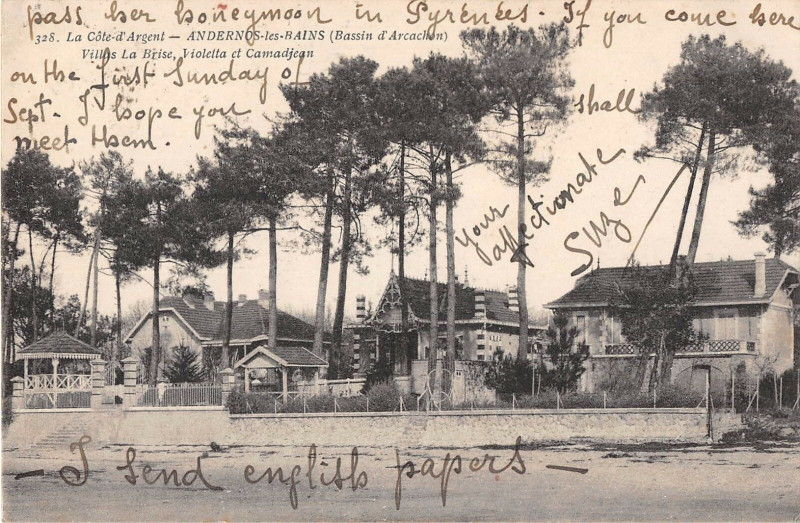 pass her honeymoon in Pyrénées. If you come here
328. La Côte-d'Argent — ANDERNOS-les-BAINS (Bassin d'Arcachon)
Villas La Brise, Violetta et Camadjean
on the first Sunday of
Sept. I hope you shall
meet them.
your affectionate
Suze
— I send english papers —